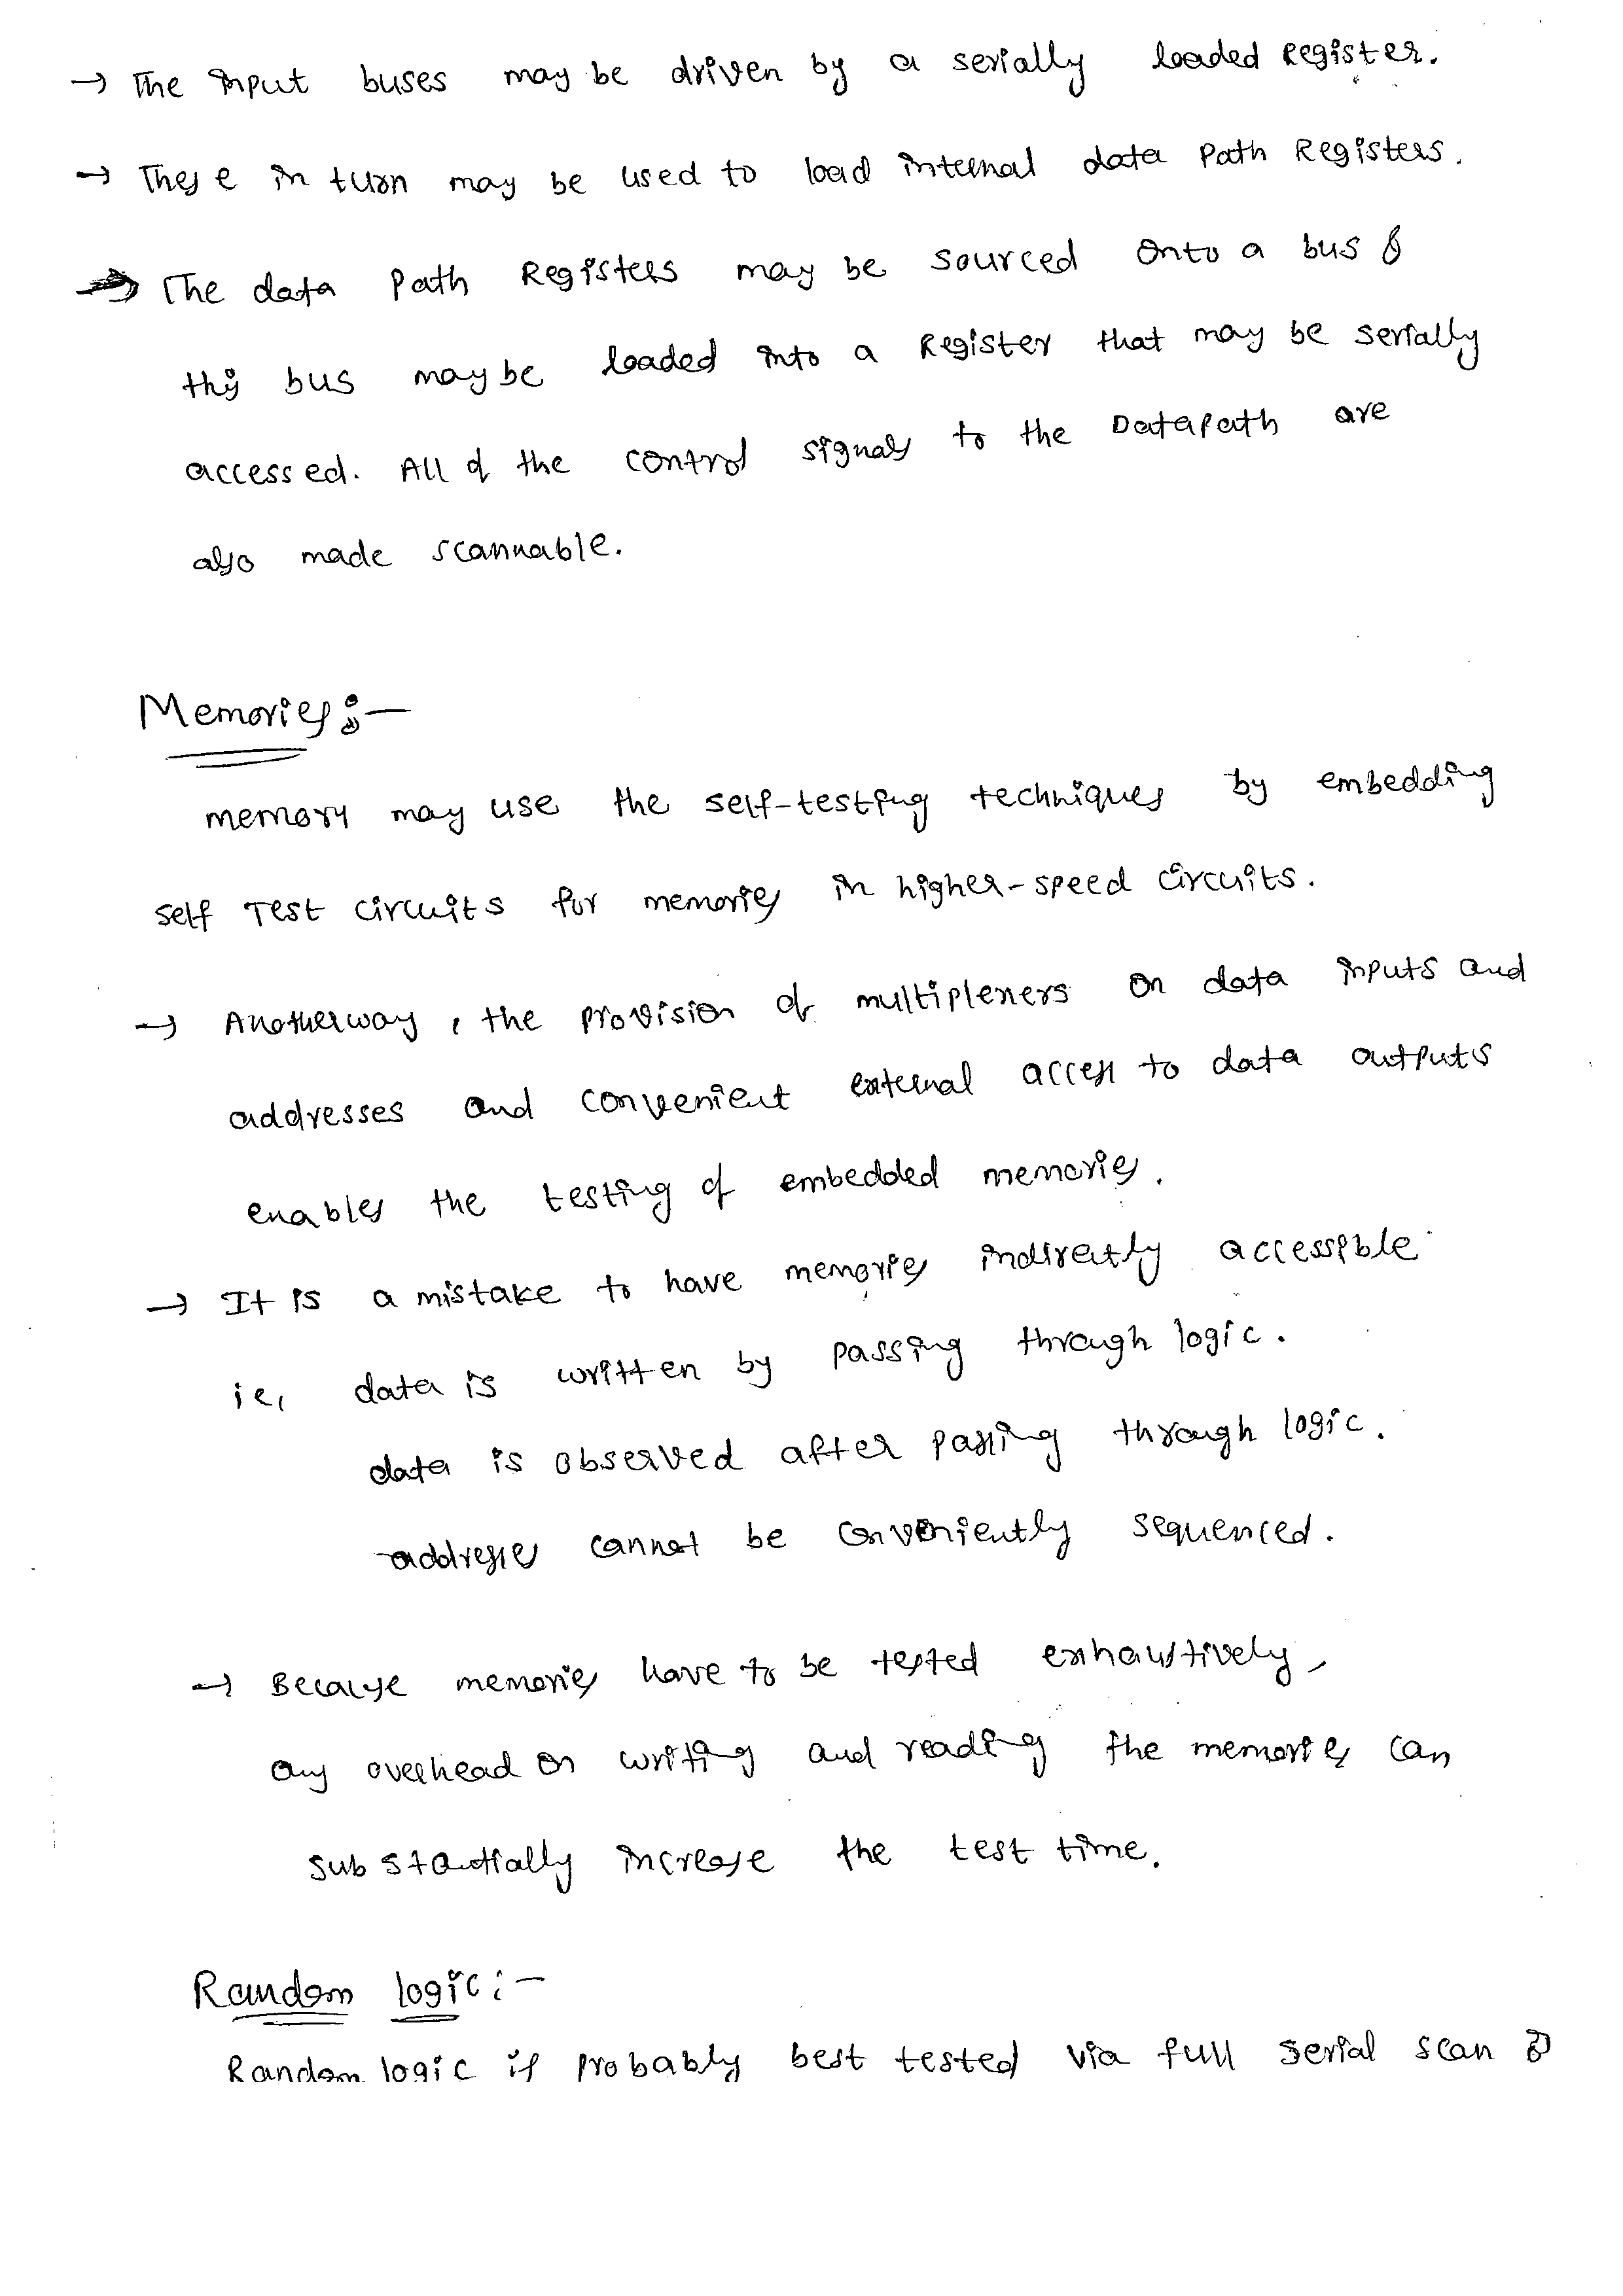 → The input buses may be driven by a serially loaded Register.
→ These in turn may be used to load internal data Path Registers.
→ The data Path Registers may be sourced onto a bus &
this bus may be loaded into a Register that may be serially
accessed. All of the control signals to the DataPath are
also made scannable.
Memories:-
memory may use the self-testing techniques by embedding
self Test circuits for memories in higher-speed circuits.
→ Another way, the provision of multiplexers on data inputs and
addresses and convenient external access to data outputs
enables the testing of embedded memories.
→ It is a mistake to have memories indirectly accessible
ie, data is written by passing through logic.
data is observed after passing through logic.
addresse cannot be conveniently sequenced.
→ Because memories have to be tested exhaustively,
any overhead on writing and reading the memories can
substantially increase the test time.
Random logic:-
Random logic is probably best tested via full serial scan